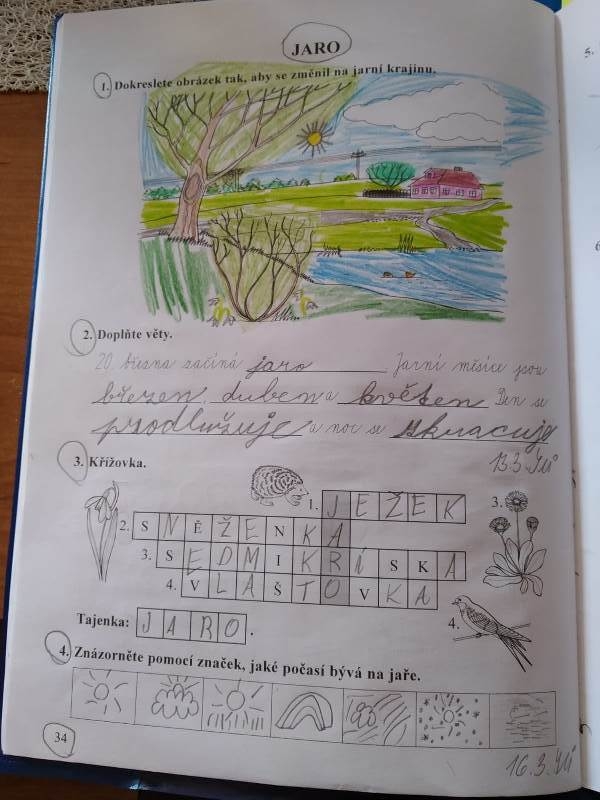 JARO
1. Dokreslete obrázek tak, aby se změnil na jarní krajinu.
2. Doplňte věty.
20. března začíná jaro Jarní měsíce jsou
březen, duben a květen Den se
prodlužuje a noc se zkracuje
13.3.
3. Křížovka.
1. JEŽEK 3.
2. SNĚŽENKA
3. SEDMIKRÍSKA
4. VLAŠTOVKA 4.
Tajenka: JARO.
4. Znázorněte pomocí značek, jaké počasí bývá na jaře.
34
16.3.